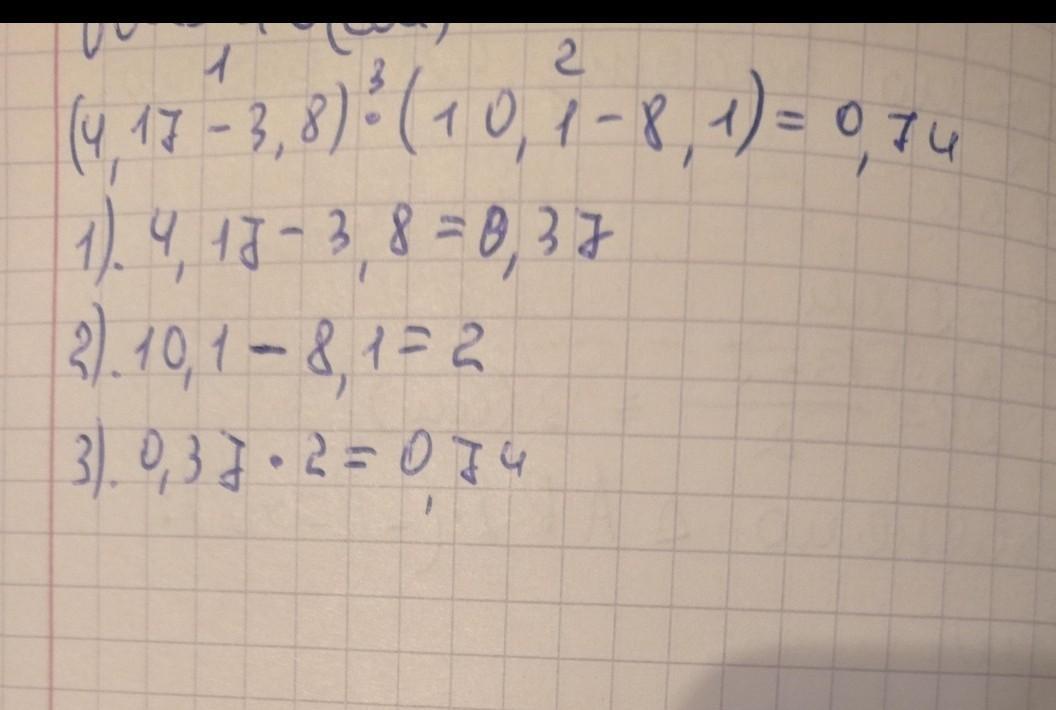 1 3 2
(4,17 - 3,8) · (10,1 - 8,1) = 0,74
1). 4,17 - 3,8 = 0,37
2). 10,1 - 8,1 = 2
3). 0,37 · 2 = 0,74